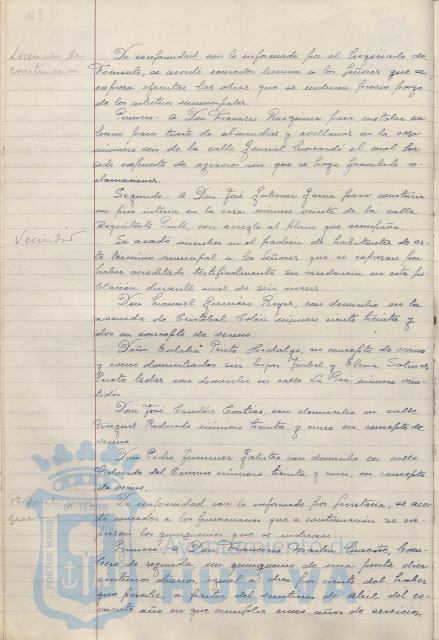 Licencias de
construcción
De conformidad con lo informado por el Negociado de
Fomento, se acordó conceder licencia a los Señores que se
expresa ejecutar las obras que se indican previo pago
de los arbitrios municipales.
Primero.- A Don Francisco para instalar un
horno para tueste de almendras y avellanas en la casa
número seis de la calle General el cual ha
sido expuesto de agravios sin que se haya formulado re-
clamaciones.
Segundo.- A Don José Gutierrez Garcia para construir
un piso interior en la casa número veinte de la calle
Arquitecto Pinto, con arreglo al plano que acompaña.
Vecindad
Se acordó inscribir en el padrón de habitantes de es-
te término municipal a los Señores que se expresan por
haber acreditado testificalmente su residencia en esta po-
blación durante más de seis meses.
Don Manuel Rojas, con domicilio en la
avenida de Cristobal Colón número ciento treinta y
dos en concepto de vecino.
Doña Eulalia Prieto Hidalgo, en concepto de vecino
y como domiciliados sus hijos Isabel y Elena Salinas
Prieto con domicilio en calle La Paz número vein-
tidós.
Don José Cortés, con domicilio en calle
Miguel Redondo número treinta y cinco en concepto de
vecino
Don Pedro Jimenez con domicilio en calle
del Camino número treinta y cinco, en concepto
de vecino.
De conformidad con lo informado por Secretaría, se acor-
dó conceder a los funcionarios que a continuación se ex-
presan los quinquenios que se indican.
Primero.- A Don Francisco
de segunda, un quinquenio de una peseta diez
centimos diarios, igual al diez por ciento del haber
que percibe, a partir del veintiuno de abril del co-
rriente año en que cumplió cinco años de servicios.
PORTUS MARIS
Ayuntamiento de
HUELVA